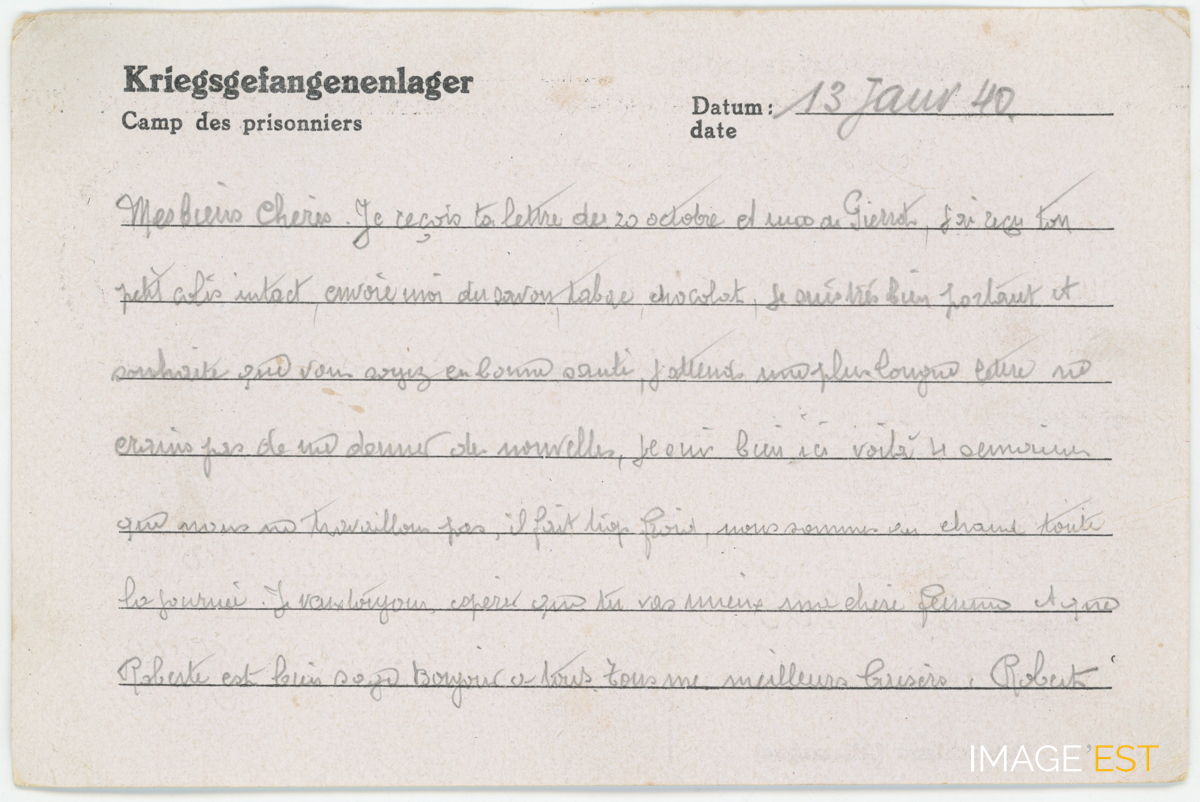 Kriegsgefangenenlager
Camp des prisonniers
Datum: 13 Janv 40
date
Mes biens Chéris. Je reçois ta lettre du 20 octobre et de Pierrot, j'ai reçu ton
petit colis intact, envoie moi du savon, tabac chocolat, je suis très bien portant et
souhaite que vous soyiez en bonne santé, j'attends une plus longue lettre ne
crains pas de me donner des nouvelles, je suis bien ici voilà 4 semaines
que nous ne travaillons pas, il fait trop froid, nous sommes au chaud toute
la journée. Je veux toujours espérer que tu vas mieux ma chère femme et que
Roberte est bien sage Bonjour a tous tous me meilleurs baisers. Robert
IMAGE EST